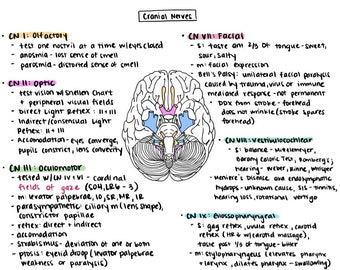 Cranial Nerves
CN I: Olfactory
- test one nostril at a time w/eyes closed
- anosmia - lost sense of smell
- parosmia - distorted sense of smell
CN II: Optic
- test vision w/ Snellen Chart
+ peripheral visual fields
- Direct Light Reflex: II + III
- Indirect/Consensual Light
Reflex: II + III
- Accomodation - eye converge,
pupils constrict, lens convexity
CN III: Oculomotor
- tested w/ IV + VI - cardinal
fields of gaze (SO4, LR6 - 3)
- m: levator palpebrae, IO, SR, MR, IR
- parasympathetic: ciliary m (lens shape),
constrictor pupillae
- reflex: direct + indirect
- accomodation
- Strabismus - deviation of one or both
- ptosis: eyelid droop (levator palpebrae
weakness or paralysis)
CN VII: Facial
- S: taste ant 2/3 of tongue - sweet,
sour, salty
- m: facial expression
- Bell's Palsy: unilateral facial paralysis
caused by trauma, virus or immune
mediated response - not permanent
- DDX from stroke - forehead
does not wrinkle (stroke spares
forehead)
CN VIII: Vestibulocochlear
- S: balance - Mittelmyer,
Barany caloric Test, Romberg's;
hearing - Weber, Rinne, Whisper
- Meniere's Disease: and endolymphatic
hydrops - unknown cause, SIS - tinnitis,
hearing loss, rotational vertigo
CN IX: Glossopharyngeal
- S: gag reflex, uvula reflex, carotid
reflex (HR ↓ w/carotid massage),
taste post 1/3 of tongue - bitter
- m: stylopharyngeus (elevates pharynx
+ larynx, dilates pharynx + swallowing)